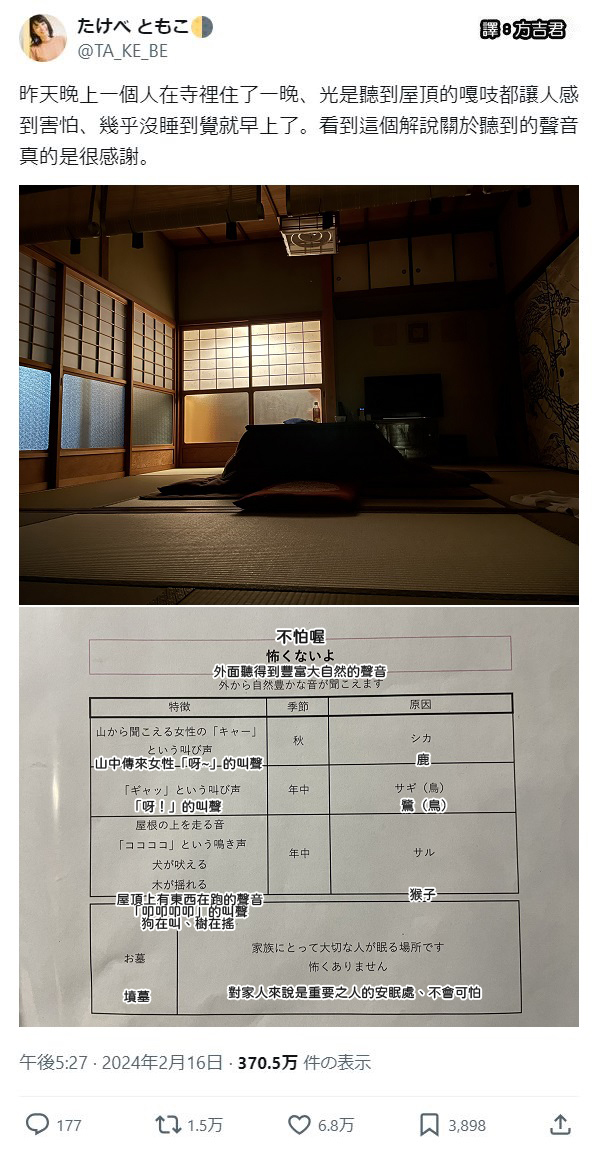 たけべ ともこ
@TA_KE_BE
譯:方吉君
昨天晚上一個人在寺裡住了一晚、光是聽到屋頂的嘎吱都讓人感
到害怕、幾乎沒睡到覺就早上了。看到這個解說關於聽到的聲音
真的是很感謝。
不怕喔
怖くないよ
外面聽得到豐富大自然的聲音
外から自然豊かな音が聞こえます
特徴 季節 原因
山から聞こえる女性の「キャー」
という叫び声
秋 シカ
山中傳來女性「呀~」的叫聲 鹿
「ギャッ」という叫び声 年中 サギ（鳥）
「呀！」的叫聲 鷺（鳥）
屋根の上を走る音
「ココココ」という鳴き声
犬が吠える
木が揺れる
年中 サル
屋頂上有東西在跑的聲音
「叩叩叩叩」的叫聲
狗在叫、樹在搖
猴子
お墓
家族にとって大切な人が眠る場所です
怖くありません
墳墓
對家人來說是重要之人的安眠處、不會可怕
午後5:27 · 2024年2月16日 · 370.5万 件の表示
177 1.5万 6.8万 3,898